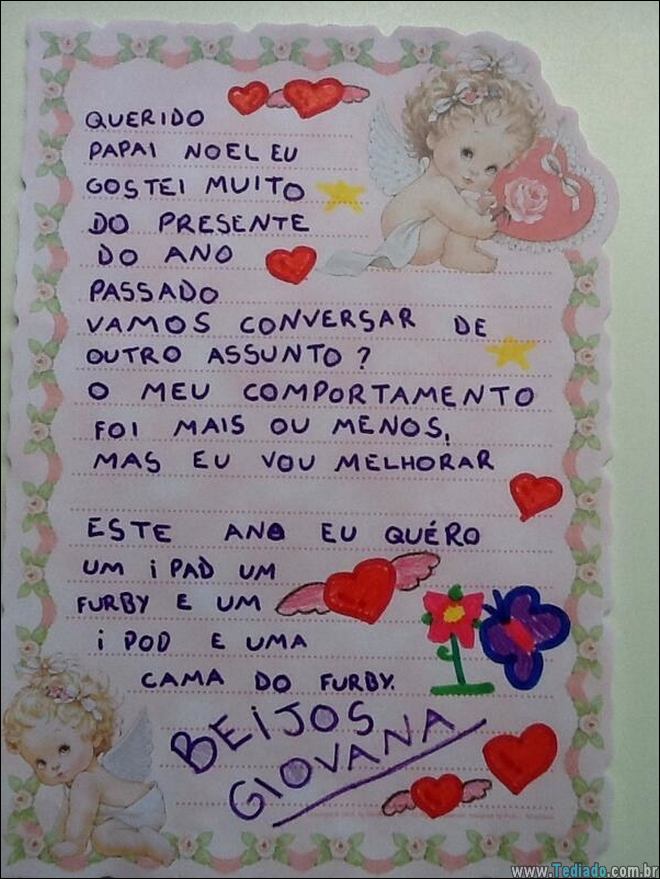 QUERIDO
PAPAI NOEL EU
GOSTEI MUITO
DO PRESENTE
DO ANO
PASSADO
VAMOS CONVERSAR DE
OUTRO ASSUNTO ?
O MEU COMPORTAMENTO
FOI MAIS OU MENOS,
MAS EU VOU MELHORAR
ESTE ANO EU QUÉRO
UM i PAD UM
FURBY E UM
i POD E UMA
CAMA DO FURBY.
BEIJOS
GIOVANA
www.Tediado.com.br